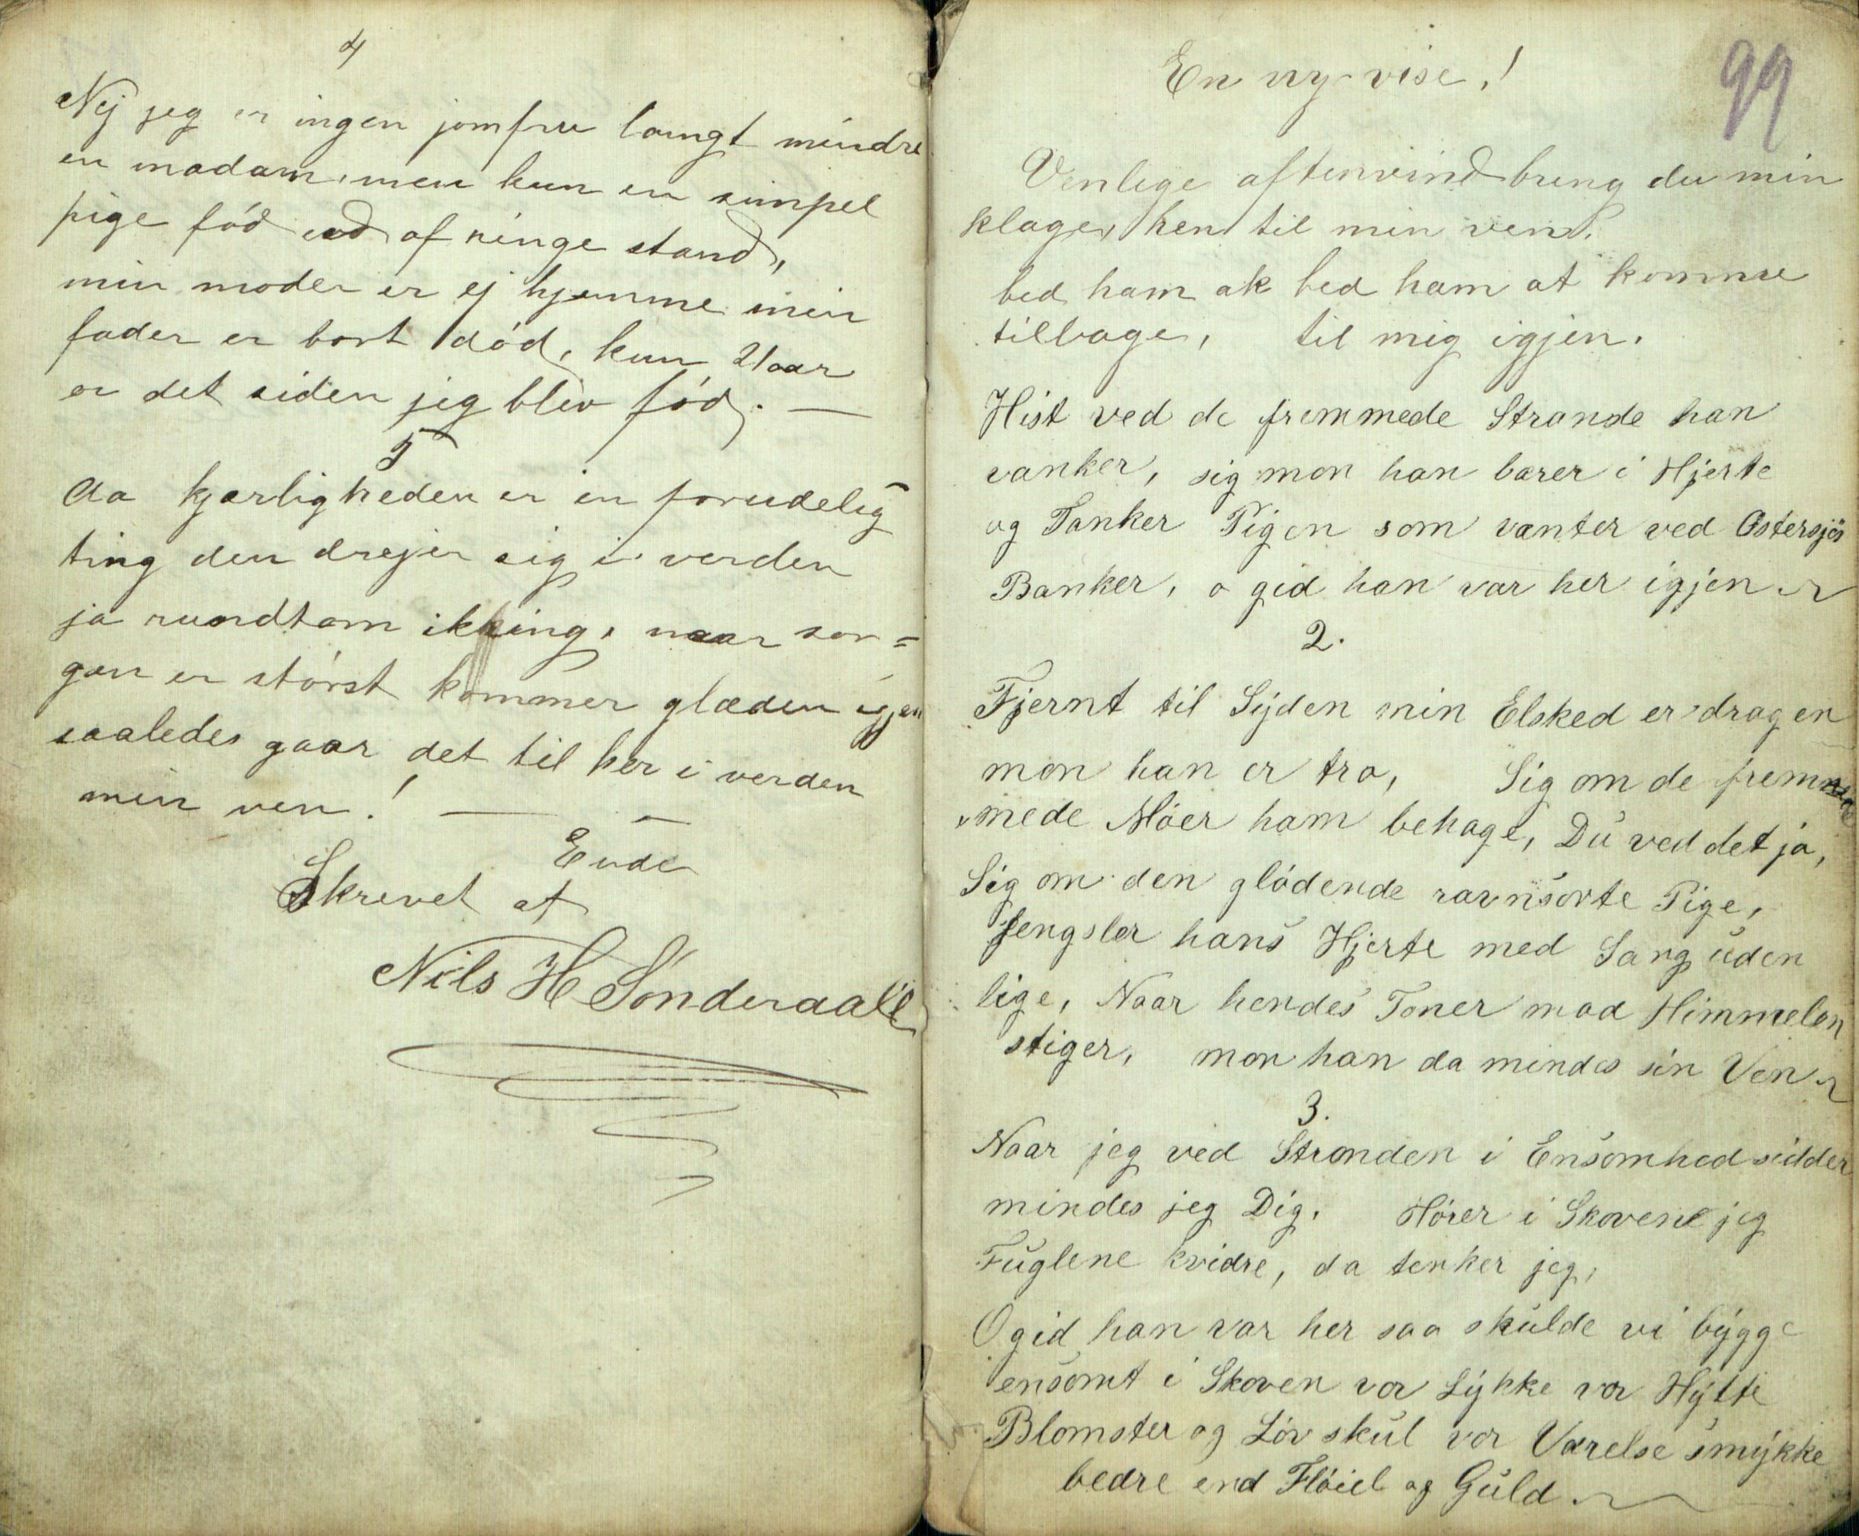 4
Nej jeg er ingen jomfru langt mindre
en madam, men kun en simpel
pige fód ud af ringe stand,
min moder er ej hjemme min
fader er bort död, kun 21 aar
er det siden jeg blev fód. —
5
da kjærligheden er en forudelig
ting den drejer sig i verden
ja rundtom ikking, naar sor=
gen er störst kommer glæden igjen
saaledes gaar det til her i verden
min ven! —
Ende
Skrevet af
Nils H Sönderaal
En ny vise!
99
Venlige aftenvind bring du min
klage, hen til min ven.
bed ham ak bed ham at komme
tilbage, til mig igjen.
Hist ved de fremmede Strande han
vanker, sig mon han bærer i Hjerte
og Tanker Pigen som venter ved Ostersjös
Banker, o gid han var her igjen
2.
Fjernt til Syden min Elsked er dragen
mon han er tro, Sig om de frem
mede Móer ham behage, Du ved det jo,
Sig om den glódende ravnsorte Pige,
fengsler hans Hjerte med Sang uden
lige, Naar hendes Toner mod Himmelen
stiger, mon han da mindes sin Ven
3.
Naar jeg ved Stranden i Ensomhed sidder
mindes jeg Dig. Hórer i Skovene jeg
Fuglene kvidre, da tenker jeg,
O gid han var her saa skulde vi bygge
ensomt i Skoven vor Lykke vor Hytte
Blomster og Lóv skul vor Værelse smykke
bedre end Flöiel og Guld